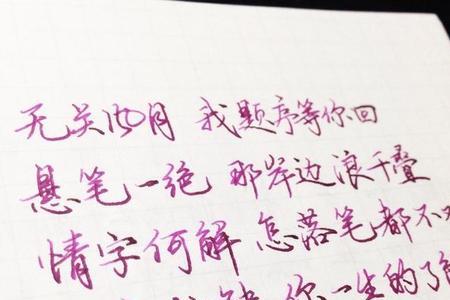 无关风月 我题序等你回
悬笔一绝 那岸边浪千叠
情字何解 怎落笔都不
你一生的了